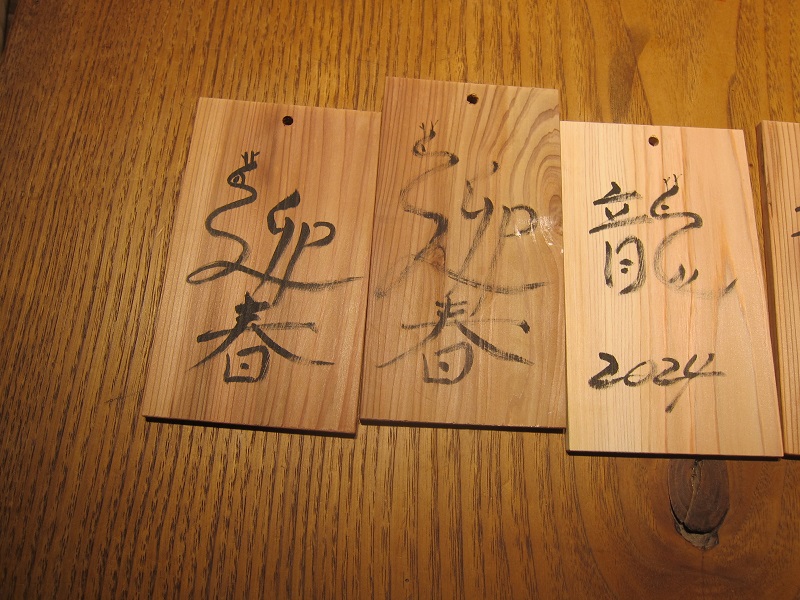 迎
春
迎
春
龍
2024